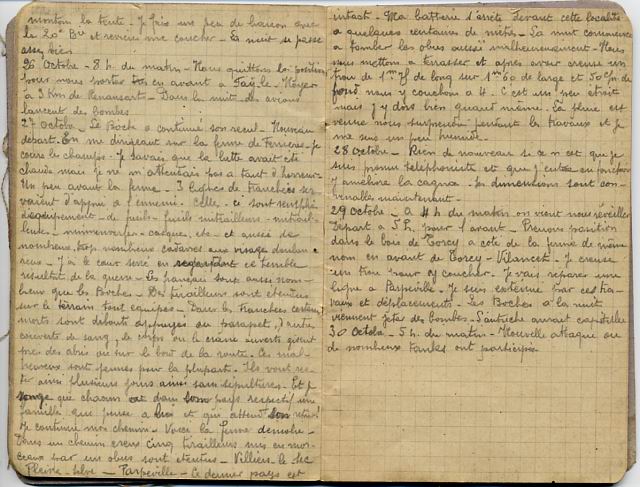 montons la tente - Je fais un peu de liaison avec
la 20e Bie et reviens me coucher - La nuit se passe
assez bien
26 Octobre - 8 h. du matin - Nous quittons les positions
pour nous porter en avant à
à 3 Km de Renansart - Dans la nuit des avions
lancent des bombes
27 Octobre - Le Boche a continué son recul - Nouveau
départ. En me dirigeant sur la ferme de Ferrière - je
cours les champs - Je savais que la lutte avait été
chaude mais je ne m'attendais pas à tant d'horreur
Un peu avant la ferme - 3 lignes de tranchées ser
vaient d'appui à l'ennemi - Celles-ci sont remplies
d'équipement - de fusils - fusils mitrailleurs - mitrail
leuses - minnenwerfer - casques, etc - et aussi de
nombreux, trop nombreux cadavres aux visages doulou
reux - J'ai le cœur serré en regardant ce terrible
résultat de la guerre - Les français sont aussi nom-
breux que les Boches - Des tirailleurs sont étendus
sur le terrain tout équipés - Dans les tranchées certains
morts sont debouts appuyés au parapet, d'autres
couverts de sang, le corps ou le crâne ouverts gisent
près des abris ou sur le bord de la route - Ces mal-
heureux sont jeunes pour la plupart - Ils vont res-
ter ainsi plusieurs jours ainsi sans sépultures - Et je
songe que chacun a dans son pays respectif une
famille qui pense à lui et qui attend son retour!
Je continue mon chemin - Voici la ferme démolie -
Dans un chemin creux cinq tirailleurs mis en mor-
ceaux par un obus sont étendus - Villiers le Sec
Pleine-Selve - Parpeville - Ce dernier pays est
intact - Ma batterie s'arrête devant cette localité
à quelques centaines de mètres - La nuit commence
à tomber les obus aussi malheureusement - Nous
nous mettons à terrasser et après avoir creusé un
trou de 1m de long sur 1m60 de large et 50cm de
fond nous y couchons à 4. C'est un peu étroit
mais j'y dors bien quand même. La pluie est
venue nous surprendre pendant les travaux et je
me suis un peu humide.
28 Octobre - Rien de nouveau si ce n'est que je
suis promu téléphoniste et que j'entre en fonctions
J'améliore la cagna. Les dimensions sont con-
venables maintenant -
29 Octobre - A 4 h du matin on vient nous réveiller
Départ à 5 h. pour l'avant - Prenons position
dans le bois de Torcy à côté de la ferme de même
nom en avant de Torcy - Je creuse
un trou pour y coucher. Je vais réparer une
ligne à Parpeville - Je suis exténué par ces tra-
vaux et déplacements. Les Boches à la nuit
viennent jeter des bombes - L'autriche aurait capitulé
30 Octobre - 5 h. du matin - Nouvelle attaque où
de nombreux tanks ont participé.